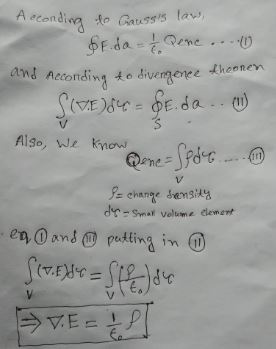 According to Gauss's law,
∮E.da = 1/ε₀ Qenc ....(I)
and According to divergence theorem
∫V (∇.E)dτ = ∮S E.da .. (II)
Also, we know
Qenc = ∫V ρdτ ..... (III)
ρ = change density
dτ = Small volume element
eq. (I) and (III) putting in (II)
∫V (∇.E)dτ = ∫V (ρ/ε₀) dτ
⇒ ∇.E = 1/ε₀ ρ